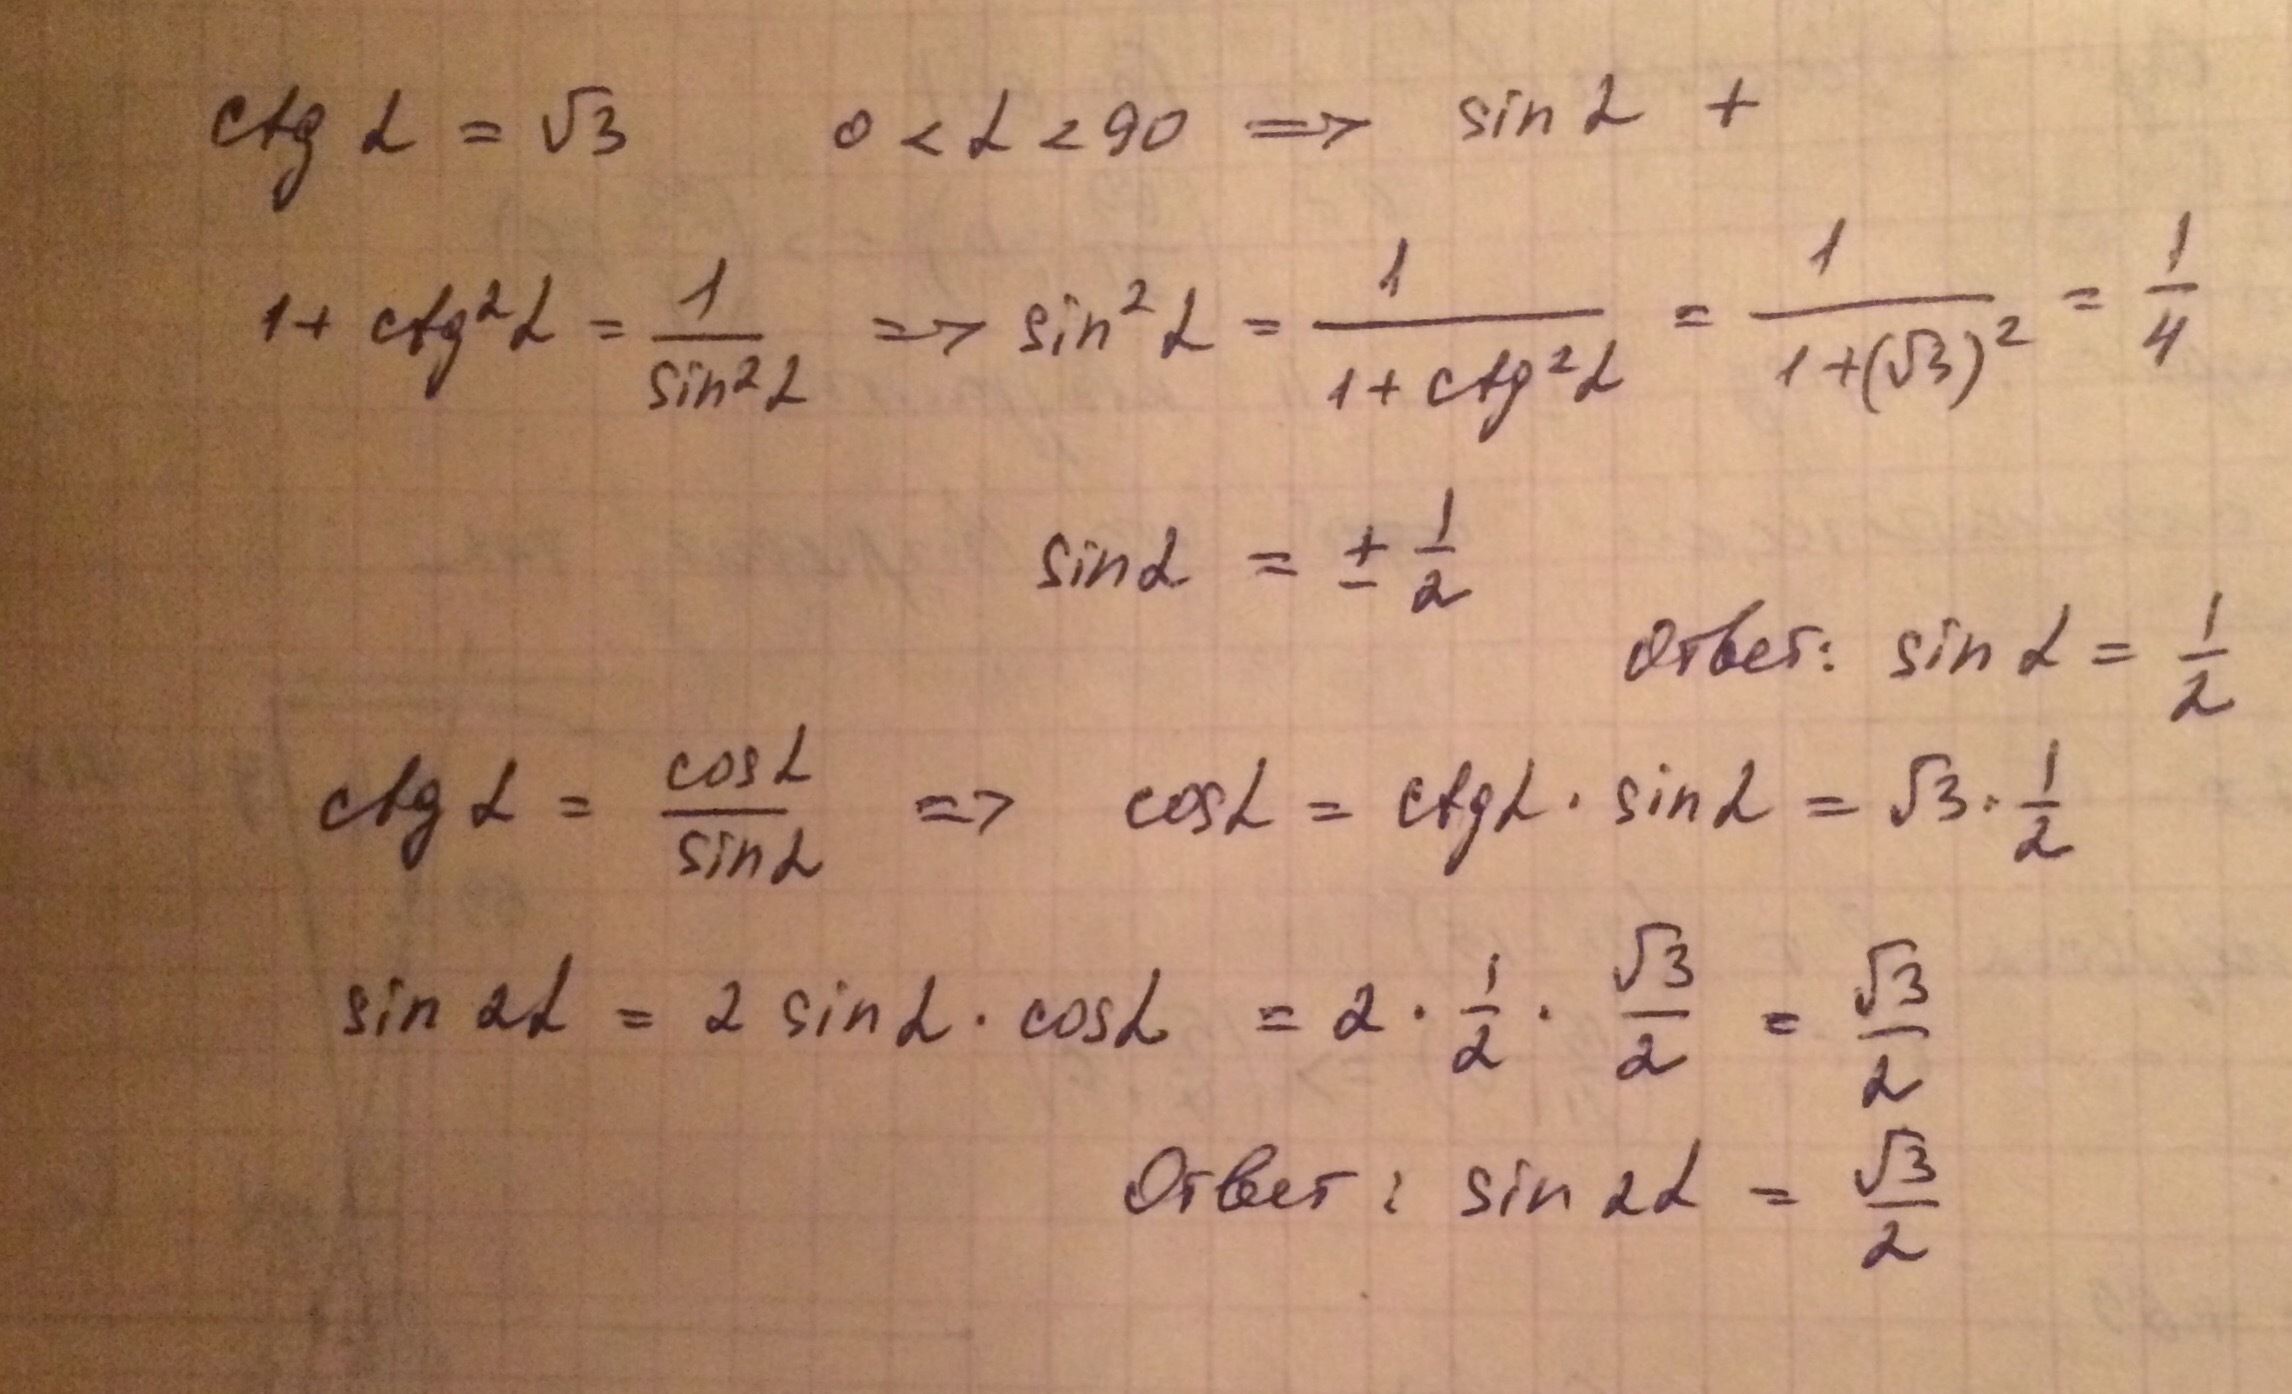 ctg α = √3 0 < α < 90 => sin α +
1 + ctg²α = 1/sin²α => sin²α = 1/(1 + ctg²α) = 1/(1+(√3)²) = 1/4
sin α = ± 1/2
Ответ: sin α = 1/2
ctg α = cos α/sin α => cos α = ctg α · sin α = √3 · 1/2
sin 2α = 2 sin α · cos α = 2 · 1/2 · √3/2 = √3/2
Ответ: sin 2α = √3/2